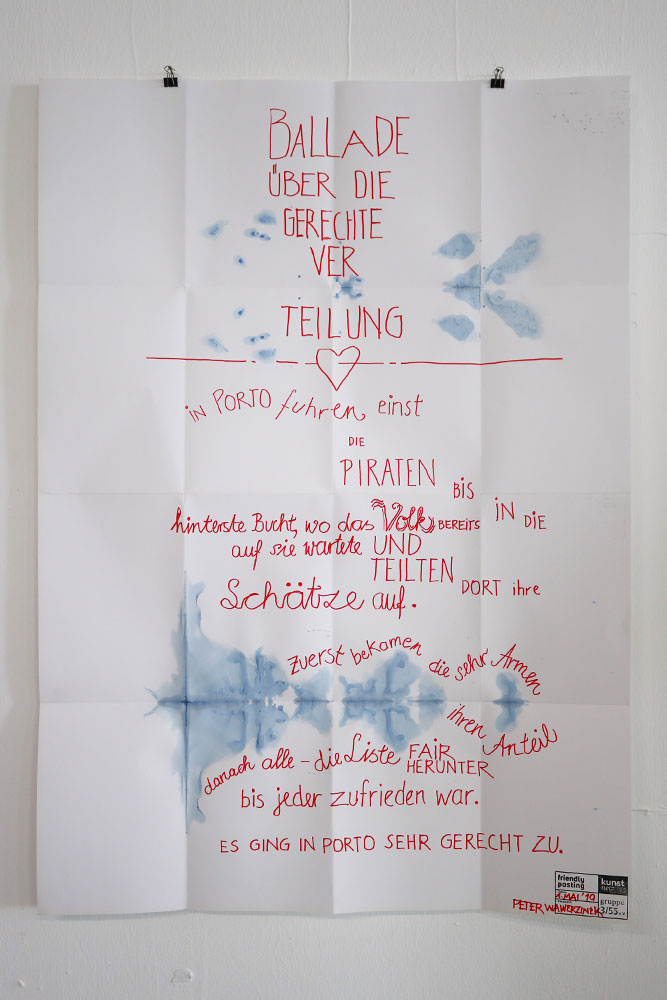 BALLADE
ÜBER DIE
GERECHTE
VER
TEILUNG
IN PORTO fuhren, einst
DIE
PIRATEN BIS
IN DIE
hinterste Bucht, wo das Volk BEREITS
auf sie wartete UND
TEILTEN DORT ihre
Schätze auf.
zuerst bekamen die sehr Armen
ihren Anteil
danach alle – die Liste FAIR
HERUNTER
bis jeder zufrieden war.
ES GING IN PORTO SEHR GERECHT ZU.
friendly
posting
kunst
1. MAI '10
gruppe
PETER WAWERZINEK
3/55 e.V.